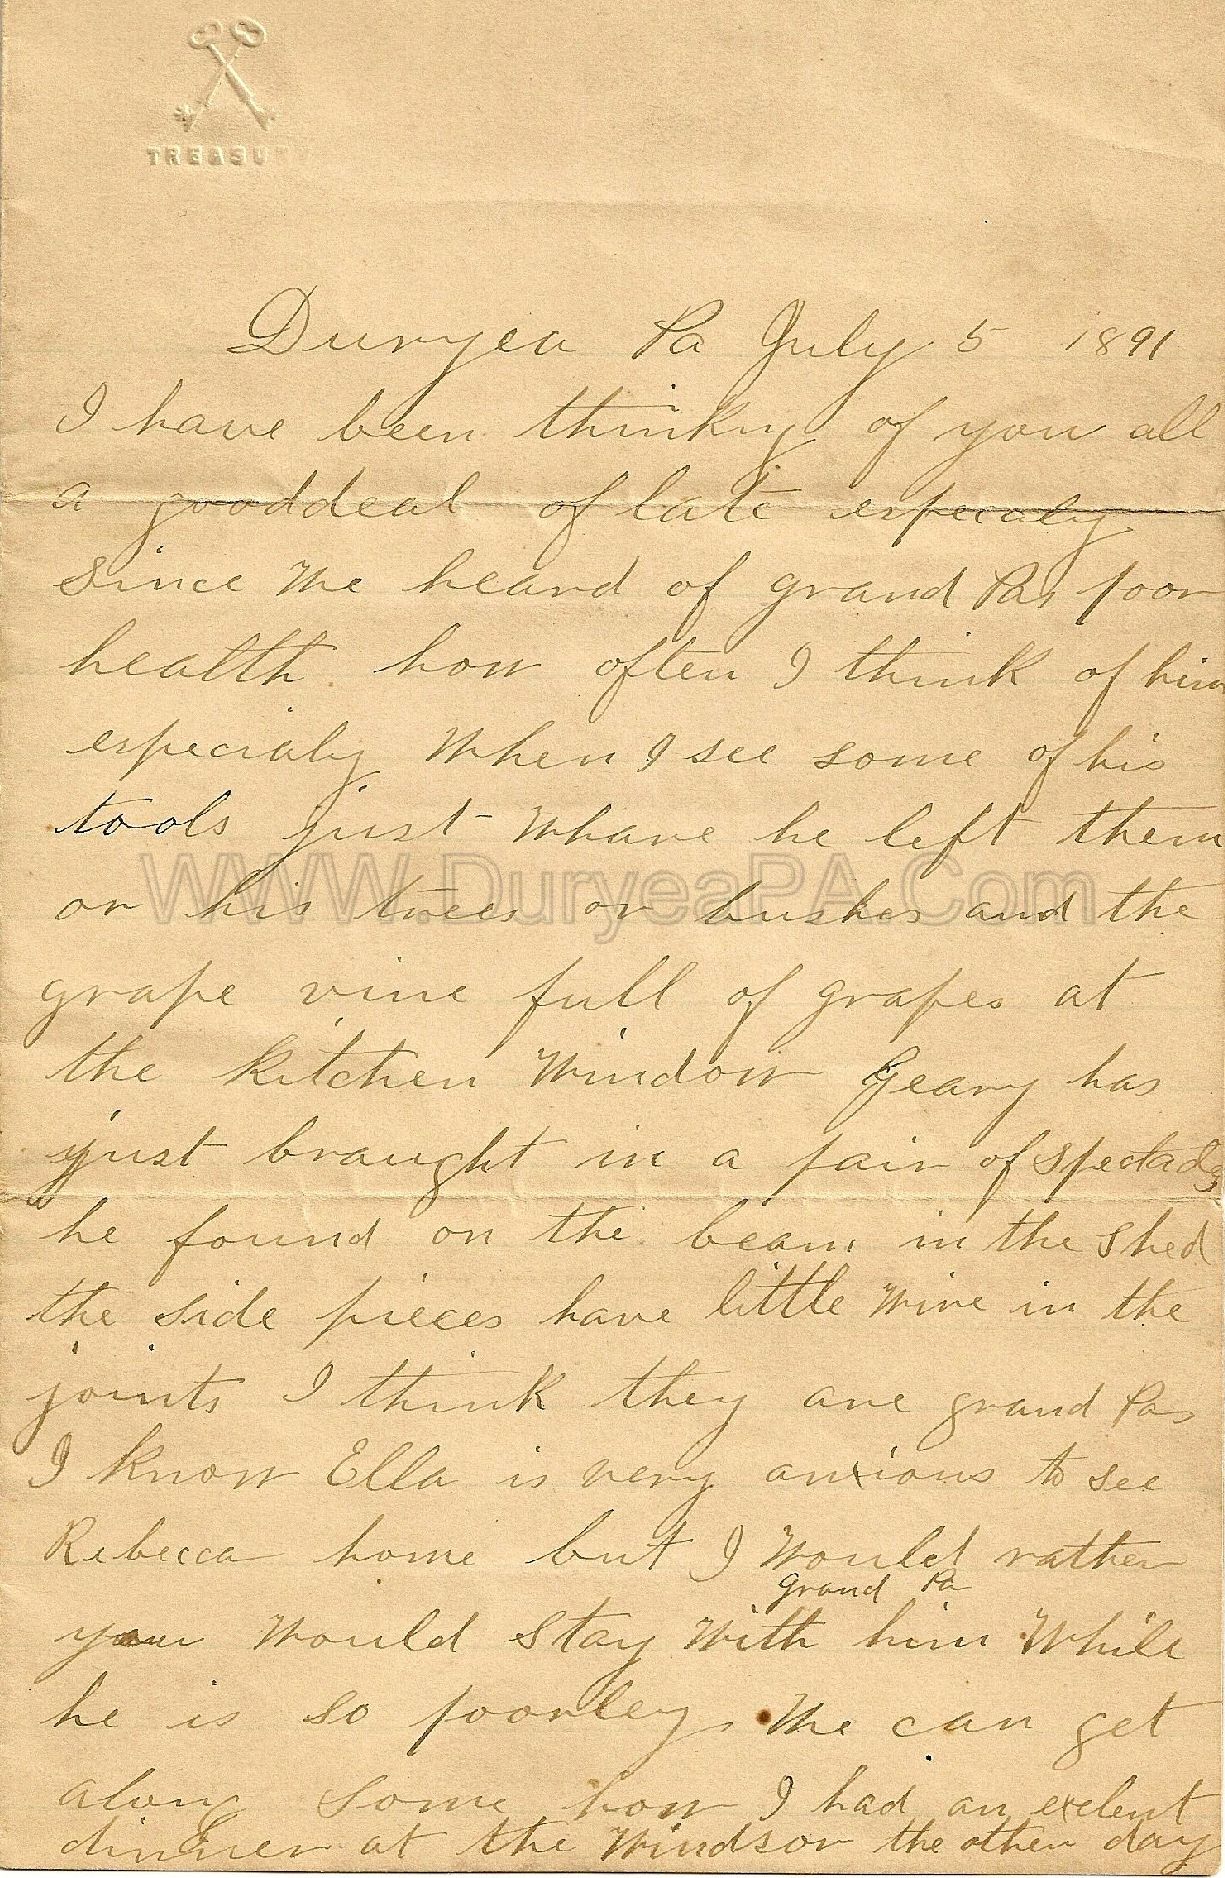 TREASURY
Duryea Pa July 5 1891
I have been thinking of you all
a gooddeal of late especialy
since we heard of grand Pas poor
health how often I think of him
especialy when I see some of his
tools just whare he left them
or his trees or bushes and the
grape vine full of grapes at
the kitchen window Geary has
just braught in a pair of
he found on the beam in the shed
the side pieces have little wire in the
joints I think they are grand Pas
I know Ella is very anxious to see
Rebecca home but I would rather
grand Pa
you would stay with him while
he is so poorley we can get
along some how I had an exelent
dinner at the Windsor the other day
WWW.DuryeaPA.Com